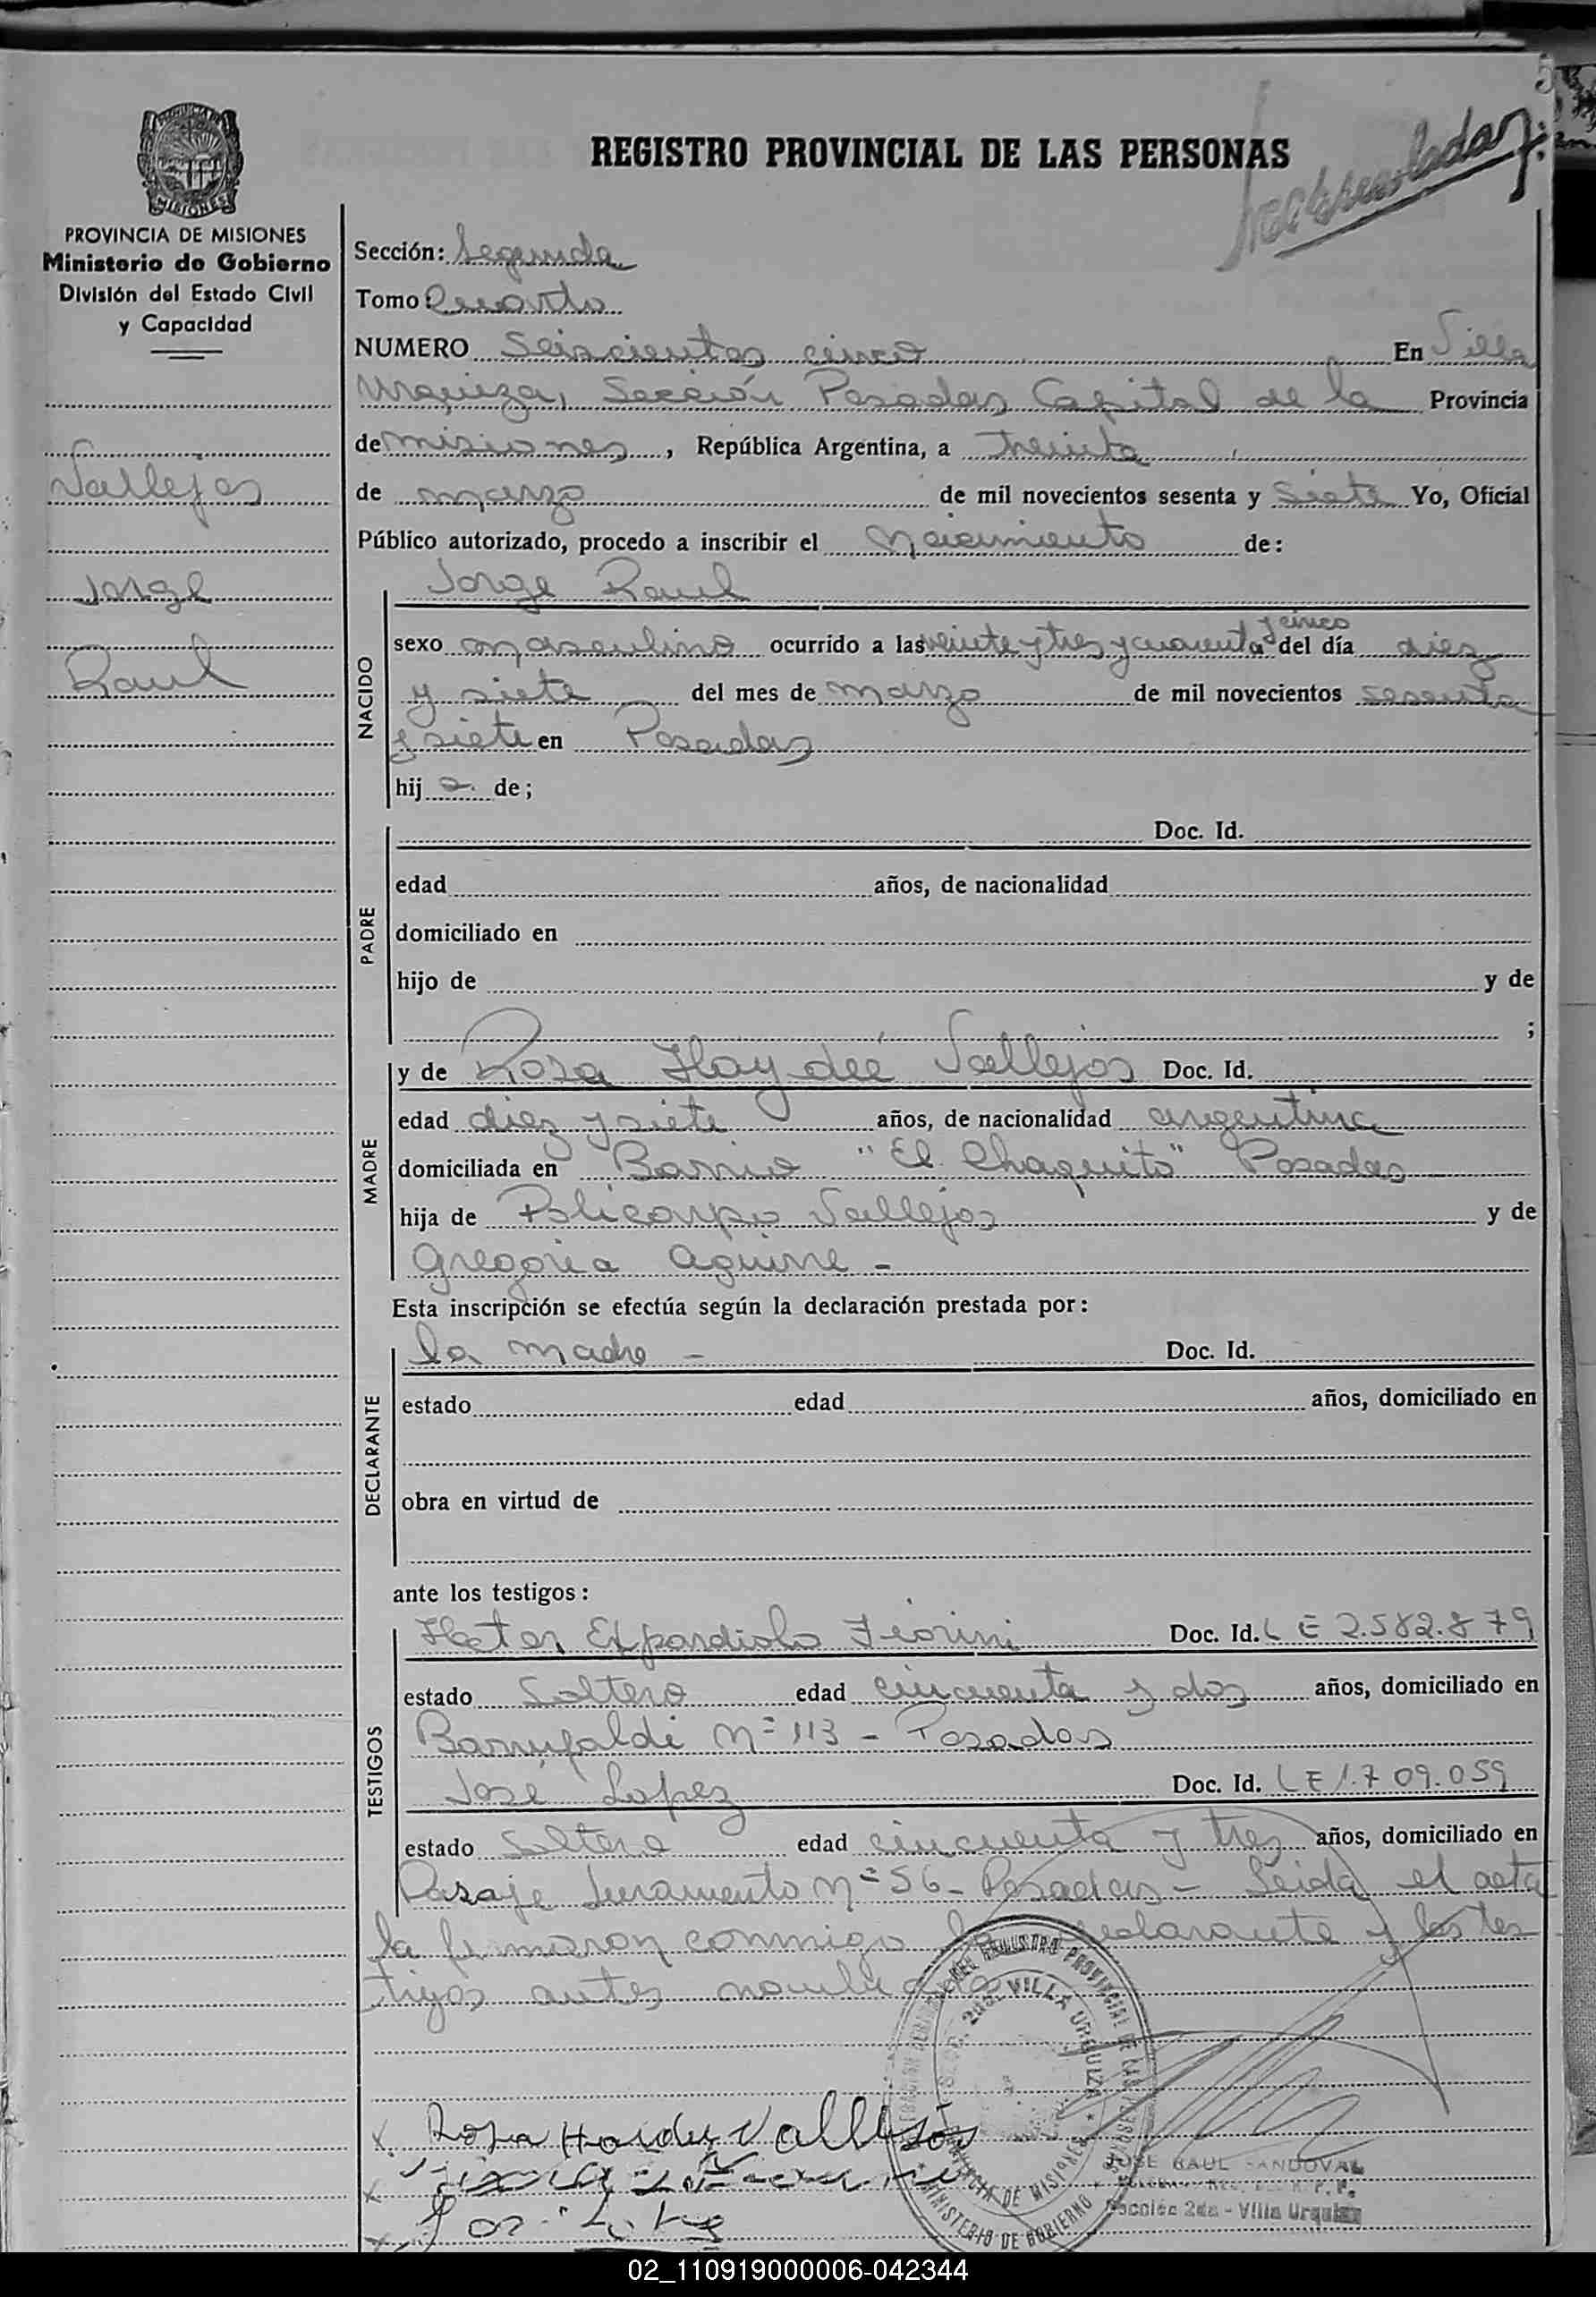 REGISTRO PROVINCIAL DE LAS PERSONAS
MISIONES
PROVINCIA DE MISIONES
Ministerio de Gobierno
División del Estado Civil
y Capacidad
Vallejos
Jorge
Raul
Sección: Segunda
Tomo Cuarto
NUMERO Seiscientos cinco En Villa
Urquiza, Sección Posadas Capital de la Provincia
de misiones, República Argentina, a Treinta
de marzo de mil novecientos sesenta y Siete Yo, Oficial
Público autorizado, procedo a inscribir el nacimiento de:
NACIDO
Jorge Raul
y cinco
sexo masculino ocurrido a las veinte y tres y cuarenta del día diez
y siete del mes de marzo de mil novecientos sesenta
y siete en Posadas
hij o de;
PADRE
Doc. Id.
edad años, de nacionalidad
domiciliado en
hijo de y de
;
MADRE
y de Rosa Haydeé Vallejos Doc. Id.
edad diez y siete años, de nacionalidad argentina
domiciliada en Barrio "El Chaquito" Posadas
hija de Policarpo Vallejos y de
Gregoria Aguirre -
Esta inscripción se efectúa según la declaración prestada por:
DECLARANTE
la madre - Doc. Id.
estado edad años, domiciliado en
obra en virtud de
ante los testigos:
TESTIGOS
Hector Fiorini Doc. Id. L E 2.582.879
estado Soltero edad cincuenta y dos años, domiciliado en
Barrufaldi Nº 113 - Posadas
José Lopez Doc. Id. L E 1.709.059
estado Soltero edad cincuenta y tres años, domiciliado en
Pasaje Juramento Nº 56 - Posadas - Leida el acta
la firmaron conmigo declarante y los tes
tigos antes
REGISTRO PROVINCIAL DE LAS PERSONAS
2da. VILLA URQUIZA
PROVINCIA DE MISIONES
MINISTERIO DE GOBIERNO
x Rosa Haidee Vallejos
x
x José Lopez
JOSE RAUL SANDOVAL
Sección 2da - Villa Urquiza
02_110919000006-042344